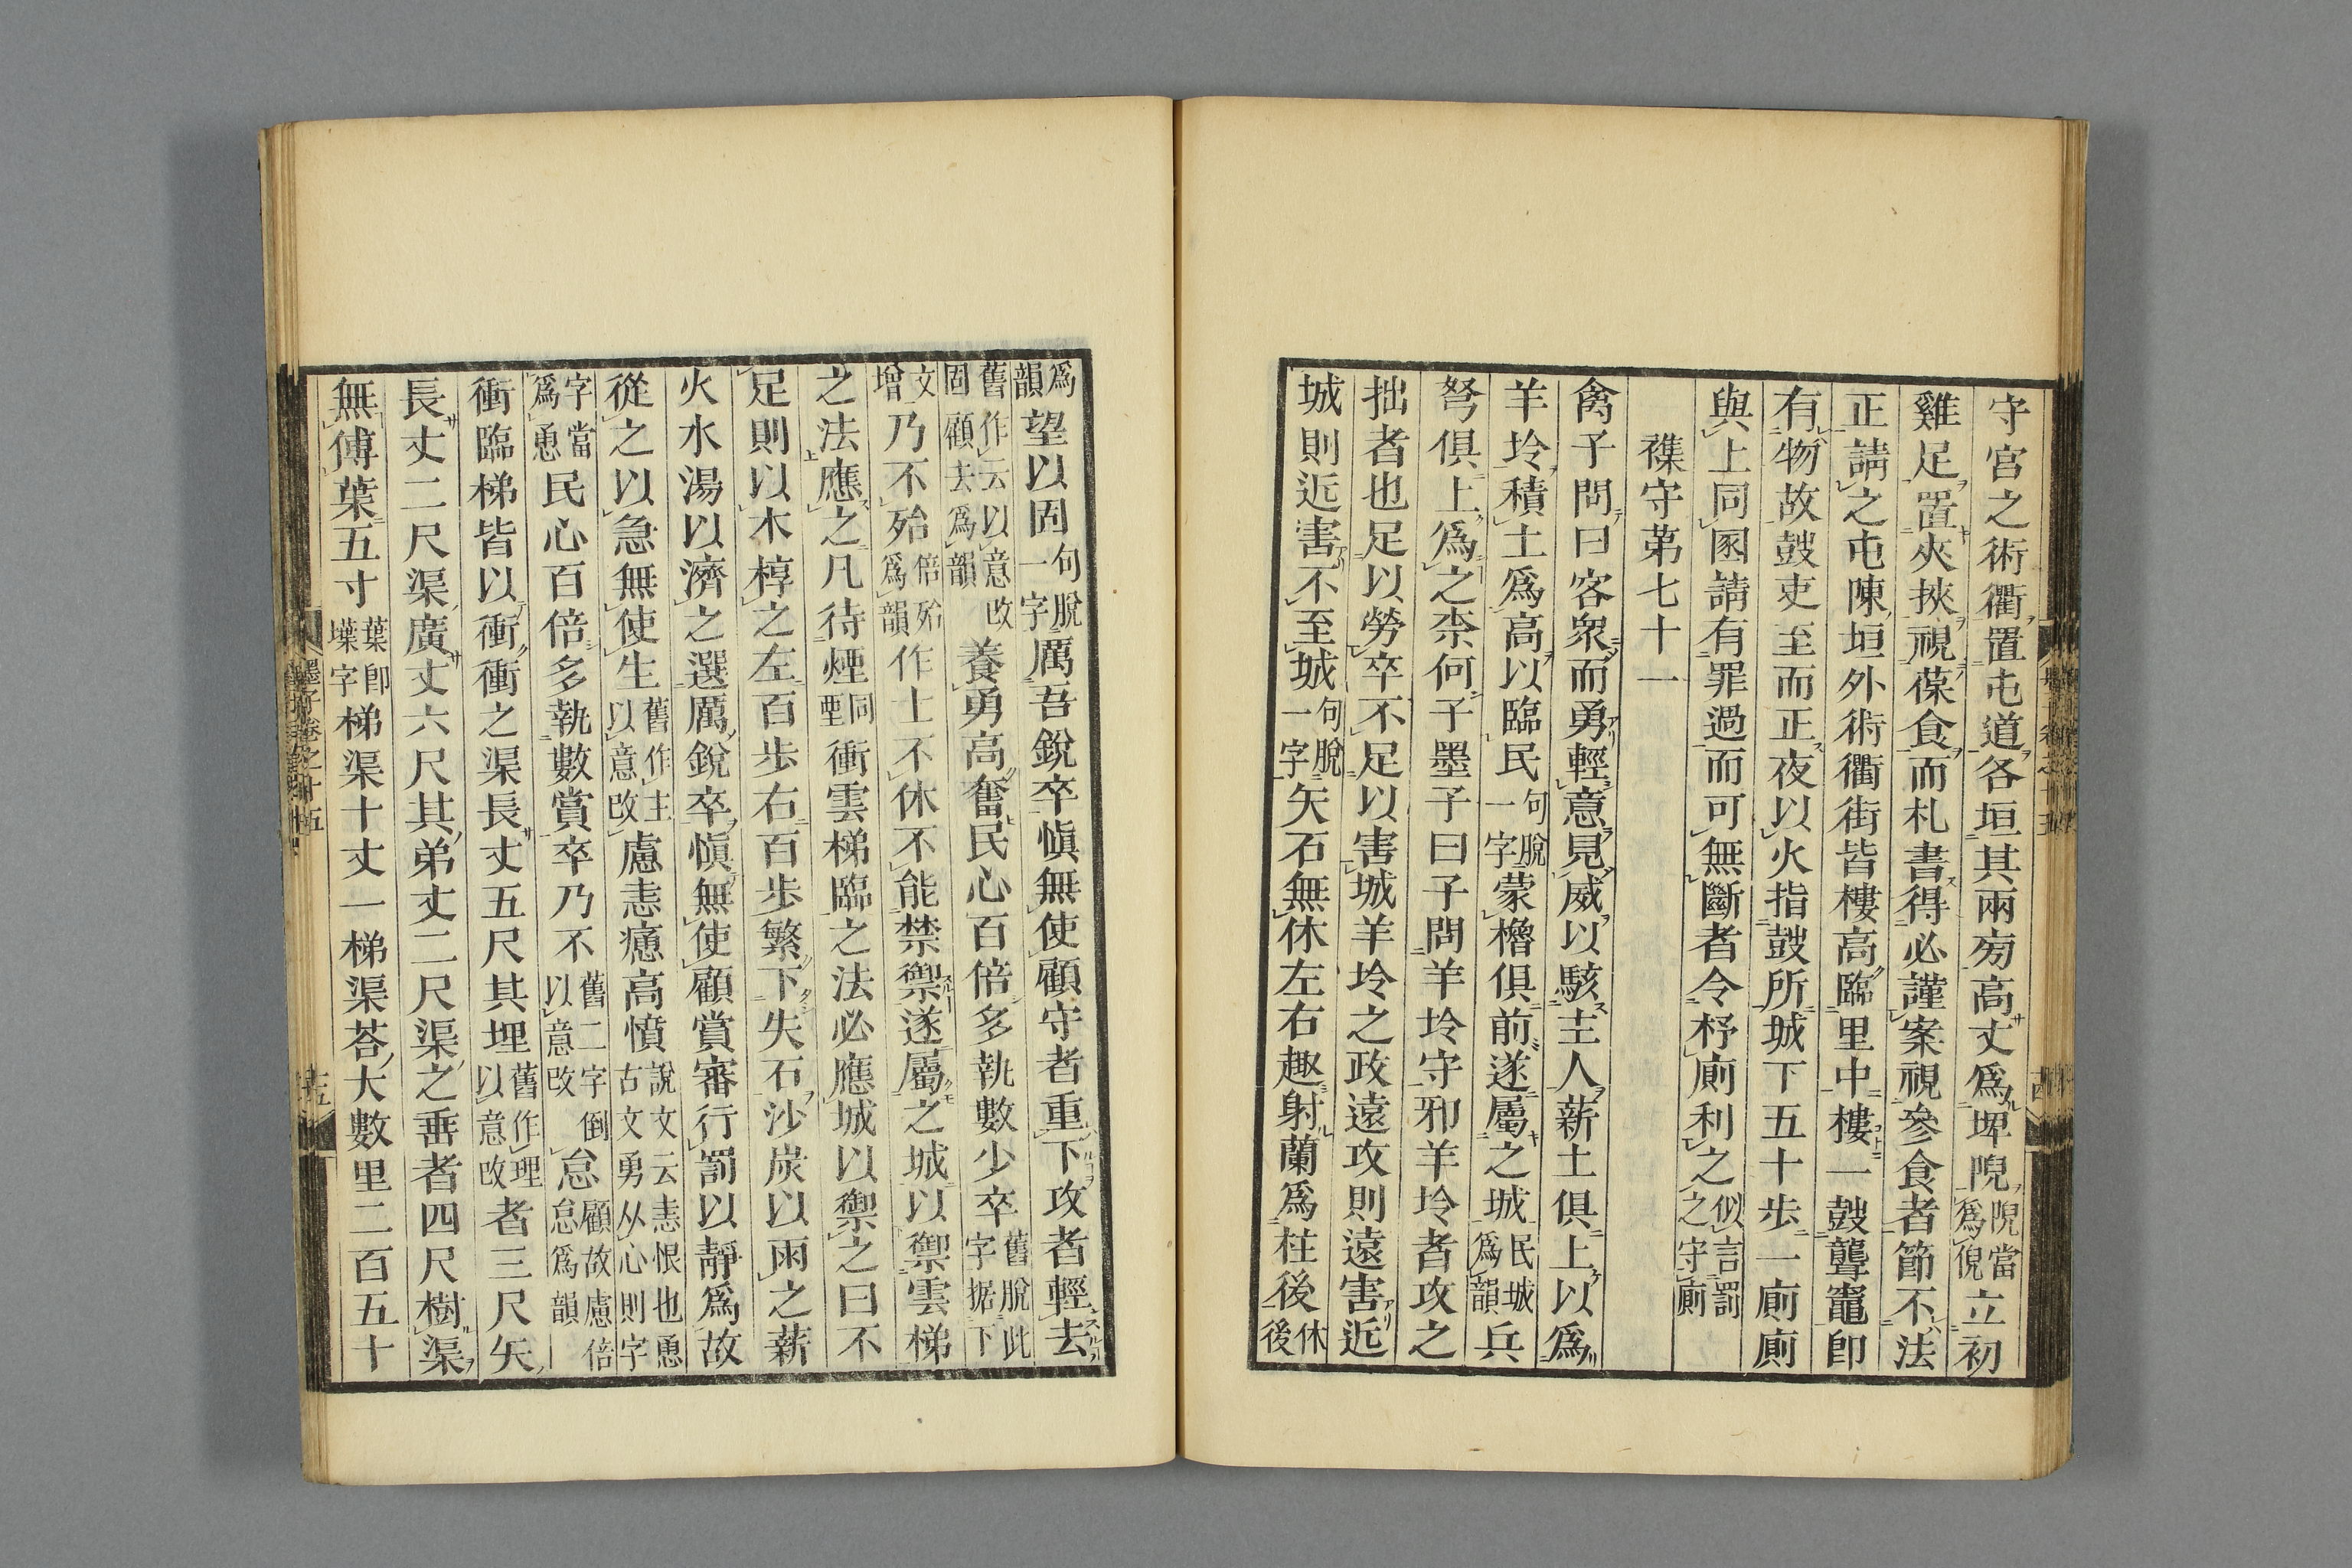 守宮之術衢置屯道各垣其兩旁高丈爲埤𨺙𨺙當爲倪立初
雞足置夾挾視葆食而札書得必謹案視參食者節不法
正請之屯陳垣外術衢街皆樓高臨里中樓一鼓聾竈卽
有物故鼓吏至而正夜以火指鼓所城下五十步一廁廁
與上同圂請有罪過而可無斷者令杼廁利之似言罰之守廁
襍守第七十一
禽子問曰客衆而勇輕意見威以駭主人薪土俱上以爲
羊坽積土爲高以臨民句脫一字蒙櫓俱前遂屬之城民城爲韻兵
弩俱上爲之柰何子墨子曰子問羊坽守邪羊坽者攻之
拙者也足以勞卒不足以害城羊坽之政遠攻則遠害近
城則近害不至城句脫一字矢石無休左右趣射蘭爲柱後休後
爲韻望以固句脫一字厲吾銳卒愼無使顧守者重下攻者輕去
舊作云以意改固顧去爲韻養勇高奮民心百倍多執數少卒舊脫此字据下
文增乃不殆倍殆爲韻作士不休不能禁禦遂屬之城以禦雲梯
之法應之凡待煙同堙衝雲梯臨之法必應城以禦之曰不
足則以木椁之左百步右百步繁下矢石沙炭以雨之薪
火水湯以濟之選厲銳卒愼無使顧賞審行罰以靜爲故
從之以急無使生舊作主以意改慮恚癔高憤說文云恚恨也恿古文勇从心則字
字當爲恿民心百倍多執數賞卒乃不舊二字倒以意改怠顧故慮倍怠爲韻
衝臨梯皆以衝衝之渠長丈五尺其埋舊作理以意改者三尺矢
長丈二尺渠廣丈六尺其弟丈二尺渠之垂者四尺樹渠
無傅葉五寸葉卽堞字梯渠十丈一梯渠荅大數里二百五十
墨子卷之十五
十五
十四